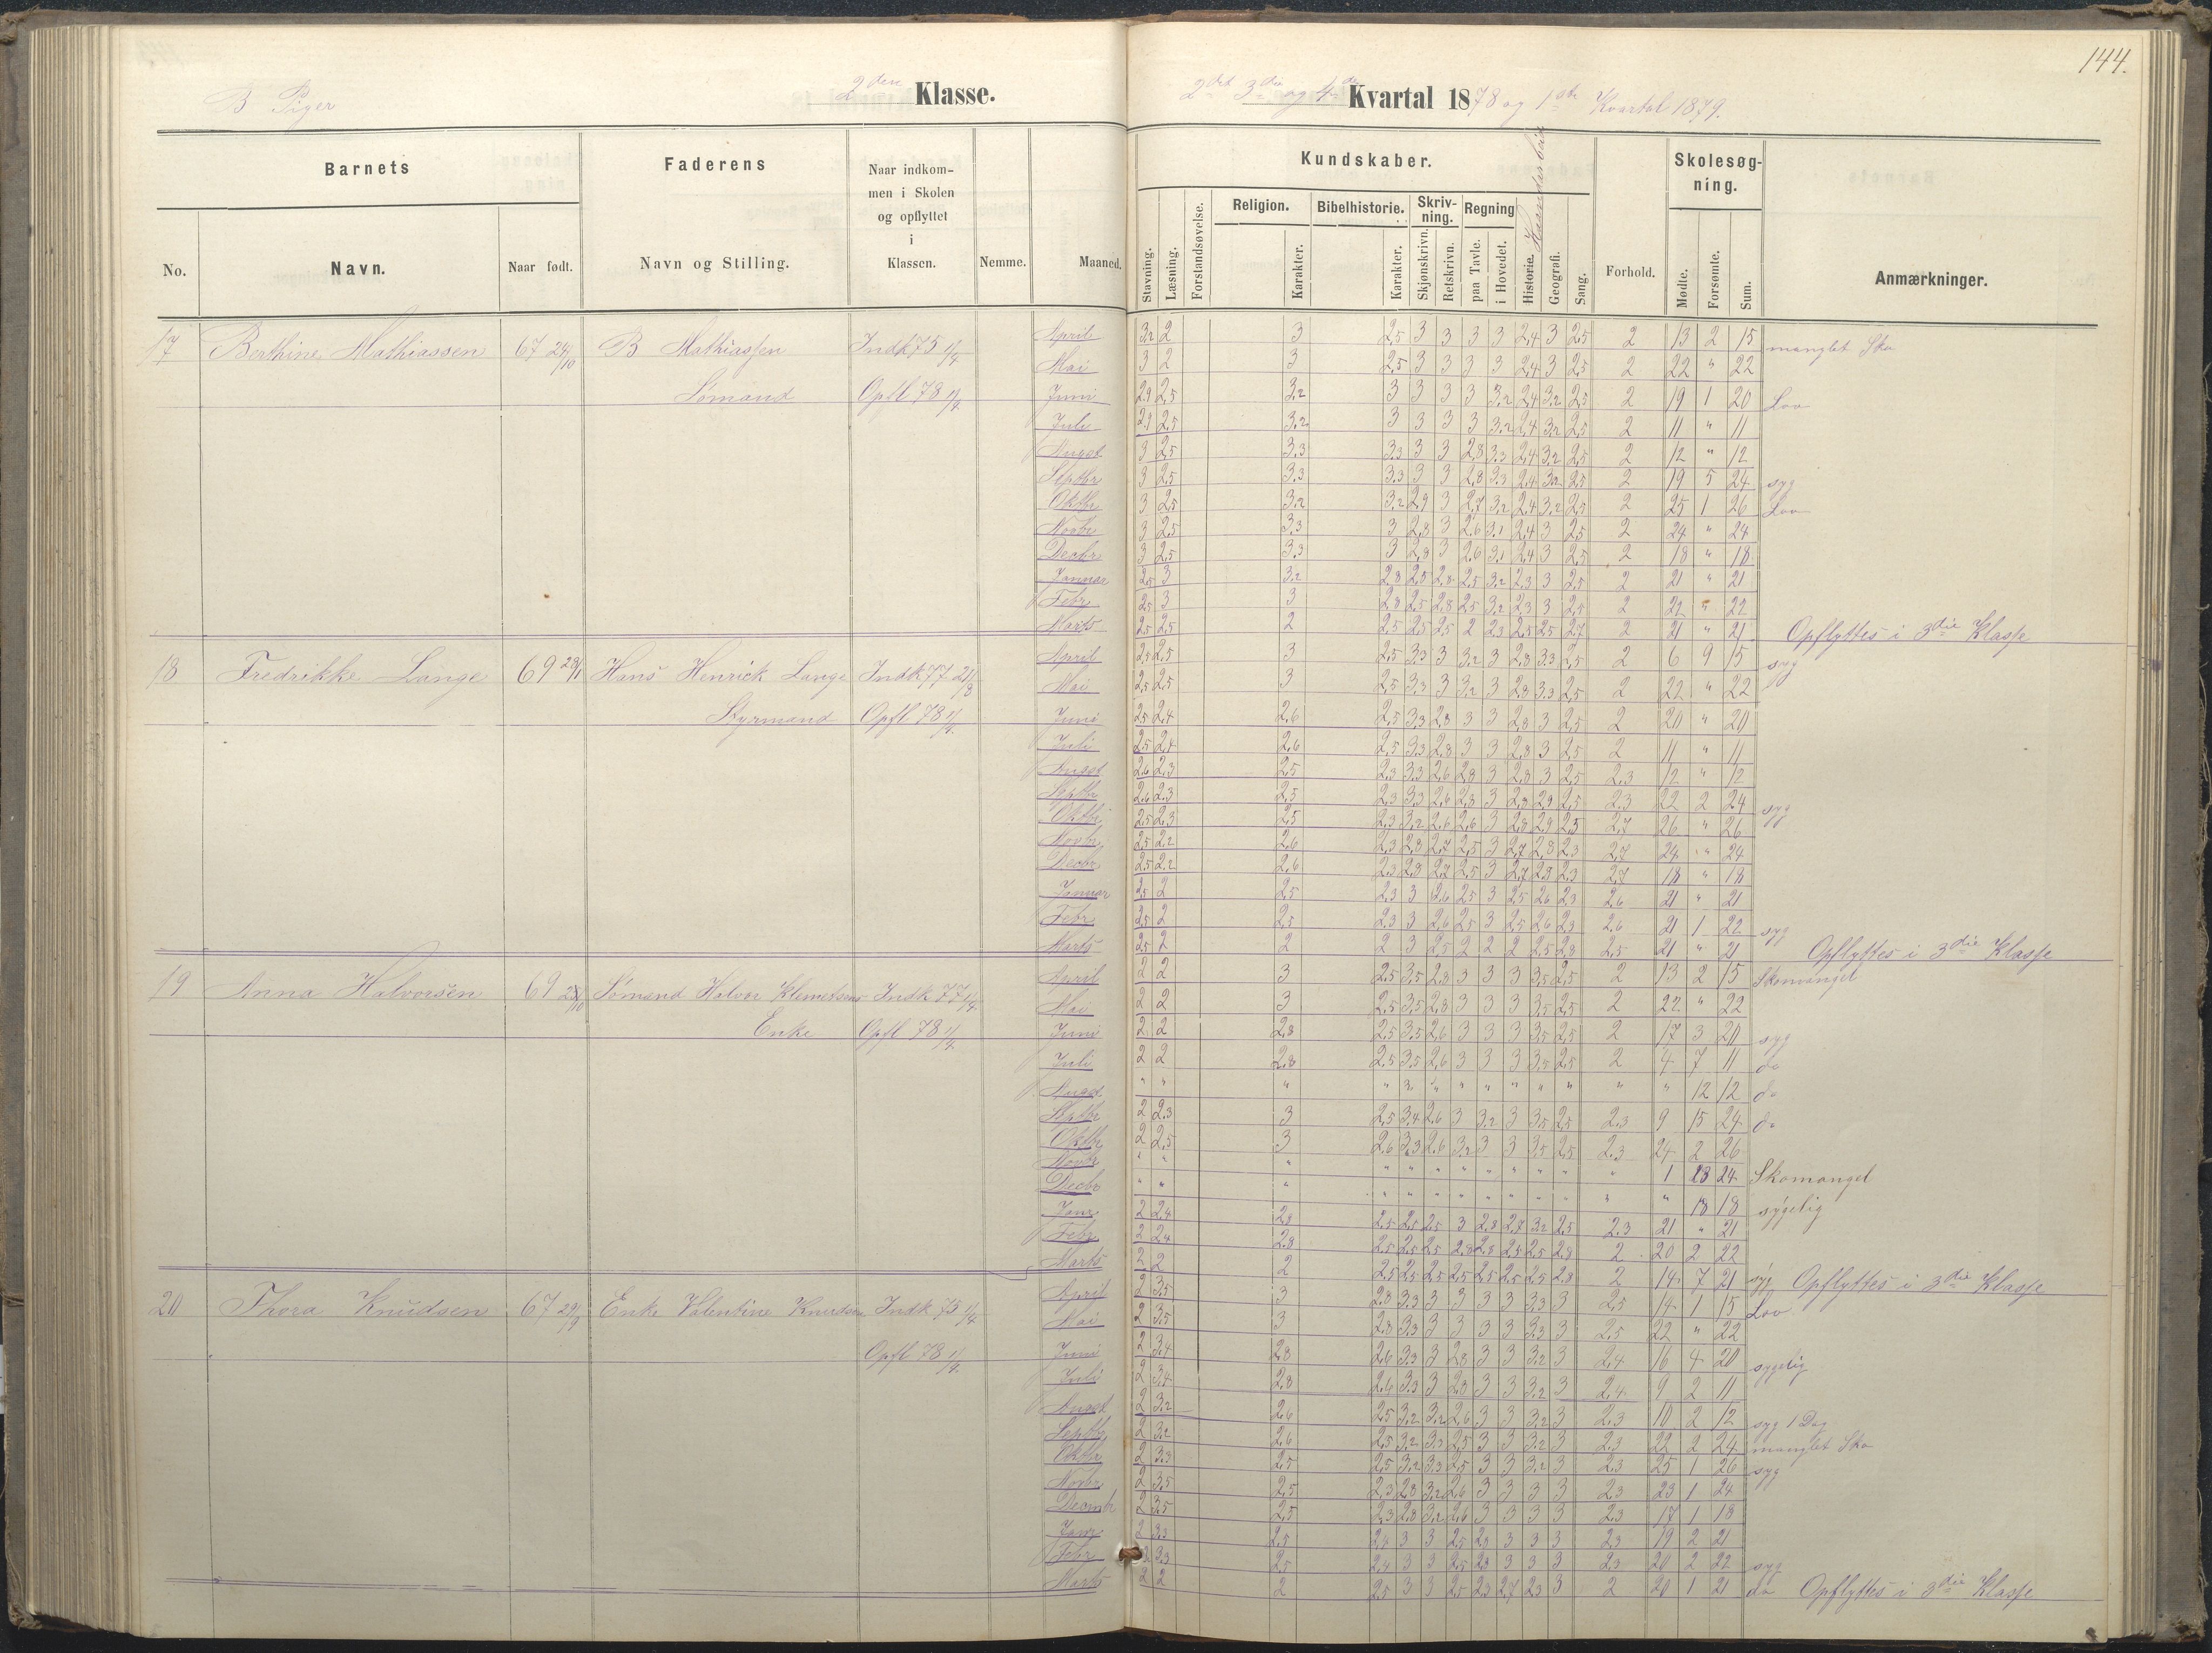 144.
B Piger 2den Klasse. 2det 3die og 4de Kvartal 1878 og 1ste Kvartal 1879.
Barnets Faderens Naar indkommen i Skolen og opflyttet i Klassen. Nemme. Maaned. Kundskaber. Forhold. Skolesøgning. Anmærkninger.
No. Navn. Naar født. Navn og Stilling.
Stavning. Læsning. Forstandsøvelse. Religion. Karakter. Bibelhistorie. Karakter. Skrivning. Skjønskrivn. Retskrivn. Regning paa Tavle. i Hovedet. Historie. Geografi. Sang. Mødte. Forsømte. Sum.
17 Berthine Mathiassen 67 24/10 B Mathiassen Indk 75 1/4 April 3,2 2 3 2,5 3 3 3 3 2,4 3 2,5 2 13 2 15 manglet Sko
Mai 3 2 3 2,5 3 3 3 3 2,4 3 2,5 2 22 " 22
Sømand Opfl 78 1/4 Juni 2,9 2,5 3,2 3 3 3 3 3,2 2,4 3,2 2,5 2 19 1 20 Lov
Juli 2,9 2,5 3,2 3 3 3 3 3,2 2,4 3,2 2,5 2 11 " 11
Augst 3 2,5 3,3 3,3 3 3 2,8 3,3 2,4 3,2 2,5 2 12 " 12
Septbr 3 2,5 3,3 3,3 3 3 2,8 3,3 2,4 3,2 2,5 2 19 5 24 syg
Oktbr 3 2,5 3,2 3,2 2,9 3 2,7 3,2 2,4 3,2 2,5 2 25 1 26 Lov
Novbr 3 2,5 3,3 3 2,8 3 2,6 3,1 2,4 3 2,5 2 24 " 24
Decbr 3 2,5 3,3 3 2,8 3 2,6 3,1 2,4 3 2,5 2 18 " 18
Januar 2,5 3 3,2 2,8 2,5 2,8 2,5 3,2 2,3 3 2,5 2 21 " 21
Febr 2,5 3 3 2,8 2,5 2,8 2,5 3,2 2,3 3 2,5 2 22 " 22
Marts 2,5 2,5 2 2,5 2,5 2,5 2 2,3 2,5 2,5 2,7 2 21 " 21 Opflyttes i 3die Klasse
18 Fredrikke Lange 69 28/1 Hans Henrick Lange Indk 77 21/8 April 2,5 2,5 3 2,5 3,3 3 3,2 3 2,8 3,3 2,5 2 6 9 15 syg
Mai 2,5 2,5 3 2,5 3,3 3 3,2 3 2,8 3,3 2,5 2 22 " 22
Styrmand Opfl 78 1/4 Juni 2,5 2,4 2,6 2,5 3,3 2,8 3 3 2,8 3 2,5 2 20 " 20
Juli 2,5 2,4 2,6 2,5 3,3 2,8 3 3 2,8 3 2,5 2 11 " 11
Augst 2,6 2,3 2,5 2,3 3,3 2,6 2,8 3 2,8 3 2,5 2,3 12 " 12
Septbr 2,6 2,3 2,5 2,3 3,3 2,6 2,8 3 2,8 2,9 2,5 2,3 22 2 24 syg
Oktbr 2,5 2,3 2,5 2,3 3,2 2,6 2,6 3 2,8 2,9 2,5 2,7 26 " 26
Novbr 2,5 2,2 2,6 2,3 2,8 2,7 2,5 3 2,7 2,8 2,3 2,7 24 " 24
Decbr 2,5 2,2 2,6 2,3 2,8 2,7 2,5 3 2,7 2,8 2,3 2,7 18 " 18
Januar 2,5 2 2,5 2,3 3 2,6 2,5 3 2,5 2,6 2,3 2,6 21 " 21
Febr 2,5 2 2,5 2,3 3 2,6 2,5 3 2,5 2,6 2,3 2,6 21 1 22 syg
Marts 2,5 2 2 2 3 2,5 2 2 2 2,5 2,8 2,5 21 " 21 Opflyttes i 3die Klasse
19 Anna Halvorsen 69 28/10 Sømand Halvor Klemetsens Indk 77 1/4 April 2 2 3 2,5 3,5 2,8 3 3 3 3,5 2,5 2 13 2 15 Skomangel
Mai 2 2 3 2,5 3,5 2,8 3 3 3 3,5 2,5 2 22 " 22
Enke Opfl 78 1/4 Juni 2 2 2,8 2,5 3,5 2,6 3 3 3 3,5 2,5 2 17 3 20 syg
Juli 2 2 2,8 2,5 3,5 2,6 3 3 3 3,5 2,5 2 4 7 11 do
Augst " " " " " " " " " " " " 12 12 do
Septbr 2 2,3 3 2,5 3,4 2,6 3 3,2 3 3,5 2,5 2,3 9 15 24 do
Oktbr 2 2,5 3 2,6 3,3 2,6 3,2 3 3 3,5 2,5 2,3 24 2 26
Novbr " " " " " " " " " " " " 1 23 24 Skomangel
Decbr " " " " " " " " " " " " " 18 18 sygelig
Janr 2 2,4 2,8 2,5 2,5 2,5 3 2,8 2,7 3,2 2,5 2,3 21 " 21
Febr 2 2,4 2,8 2,5 2,5 2,5 2,8 2,8 2,5 2,5 2,8 2 20 2 22
Marts 2 2 2 2,5 2,5 2,5 2,5 2,5 2,5 2,5 2,8 2 14 7 21 syg Opflyttes i 3die Klasse
20 Thora Knudsen 67 29/9 Enke Valentine Knudsen Indk 75 1/4 April 2 3,5 3 2,8 3,3 3 3 3 3 3,3 3 2,5 14 1 15 Lov
Mai 2 3,5 3 2,8 3,3 3 3 3 3 3,3 3 2,5 22 " 22
Opfl 78 1/4 Juni 2 3,4 2,8 2,6 3,3 3 2,8 3 3 3,2 3 2,4 16 4 20 sygelig
Juli 2 3,4 2,8 2,6 3,3 3 2,8 3 3 3,2 3 2,4 9 2 11
Augst 2 3,2 2,6 2,5 3,2 3,2 2,6 3 3 3,2 3 2,3 10 2 12 syg 1 Dag
Septbr 2 3,2 2,6 2,5 3,2 3,3 2,5 3 3 3,2 3 2,3 22 2 24 manglet Sko
Oktbr 2 3,3 2,5 2,5 3,2 3,3 2,5 3 3 3,2 3 2,3 25 1 26 syg
Novbr 2 3,5 2,5 2,3 2,8 3,2 2,6 3 3 3 3 2,3 23 1 24
Decmbr 2 3,5 2,5 2,3 2,8 3,2 2,6 3 3 3 3 2,3 17 1 18
Janr 2 3,3 2,5 2,4 3 3 2,5 2,3 3 3 3 2,3 19 2 21
Febr 2 3,3 2,5 2,4 3 3 2,5 2,3 3 3 3 2,3 20 2 22 syg
Marts 2 2 2 2,5 3 3 2,5 2,3 2,7 2,3 3 2 20 1 21 do Opflyttes i 3die Klasse